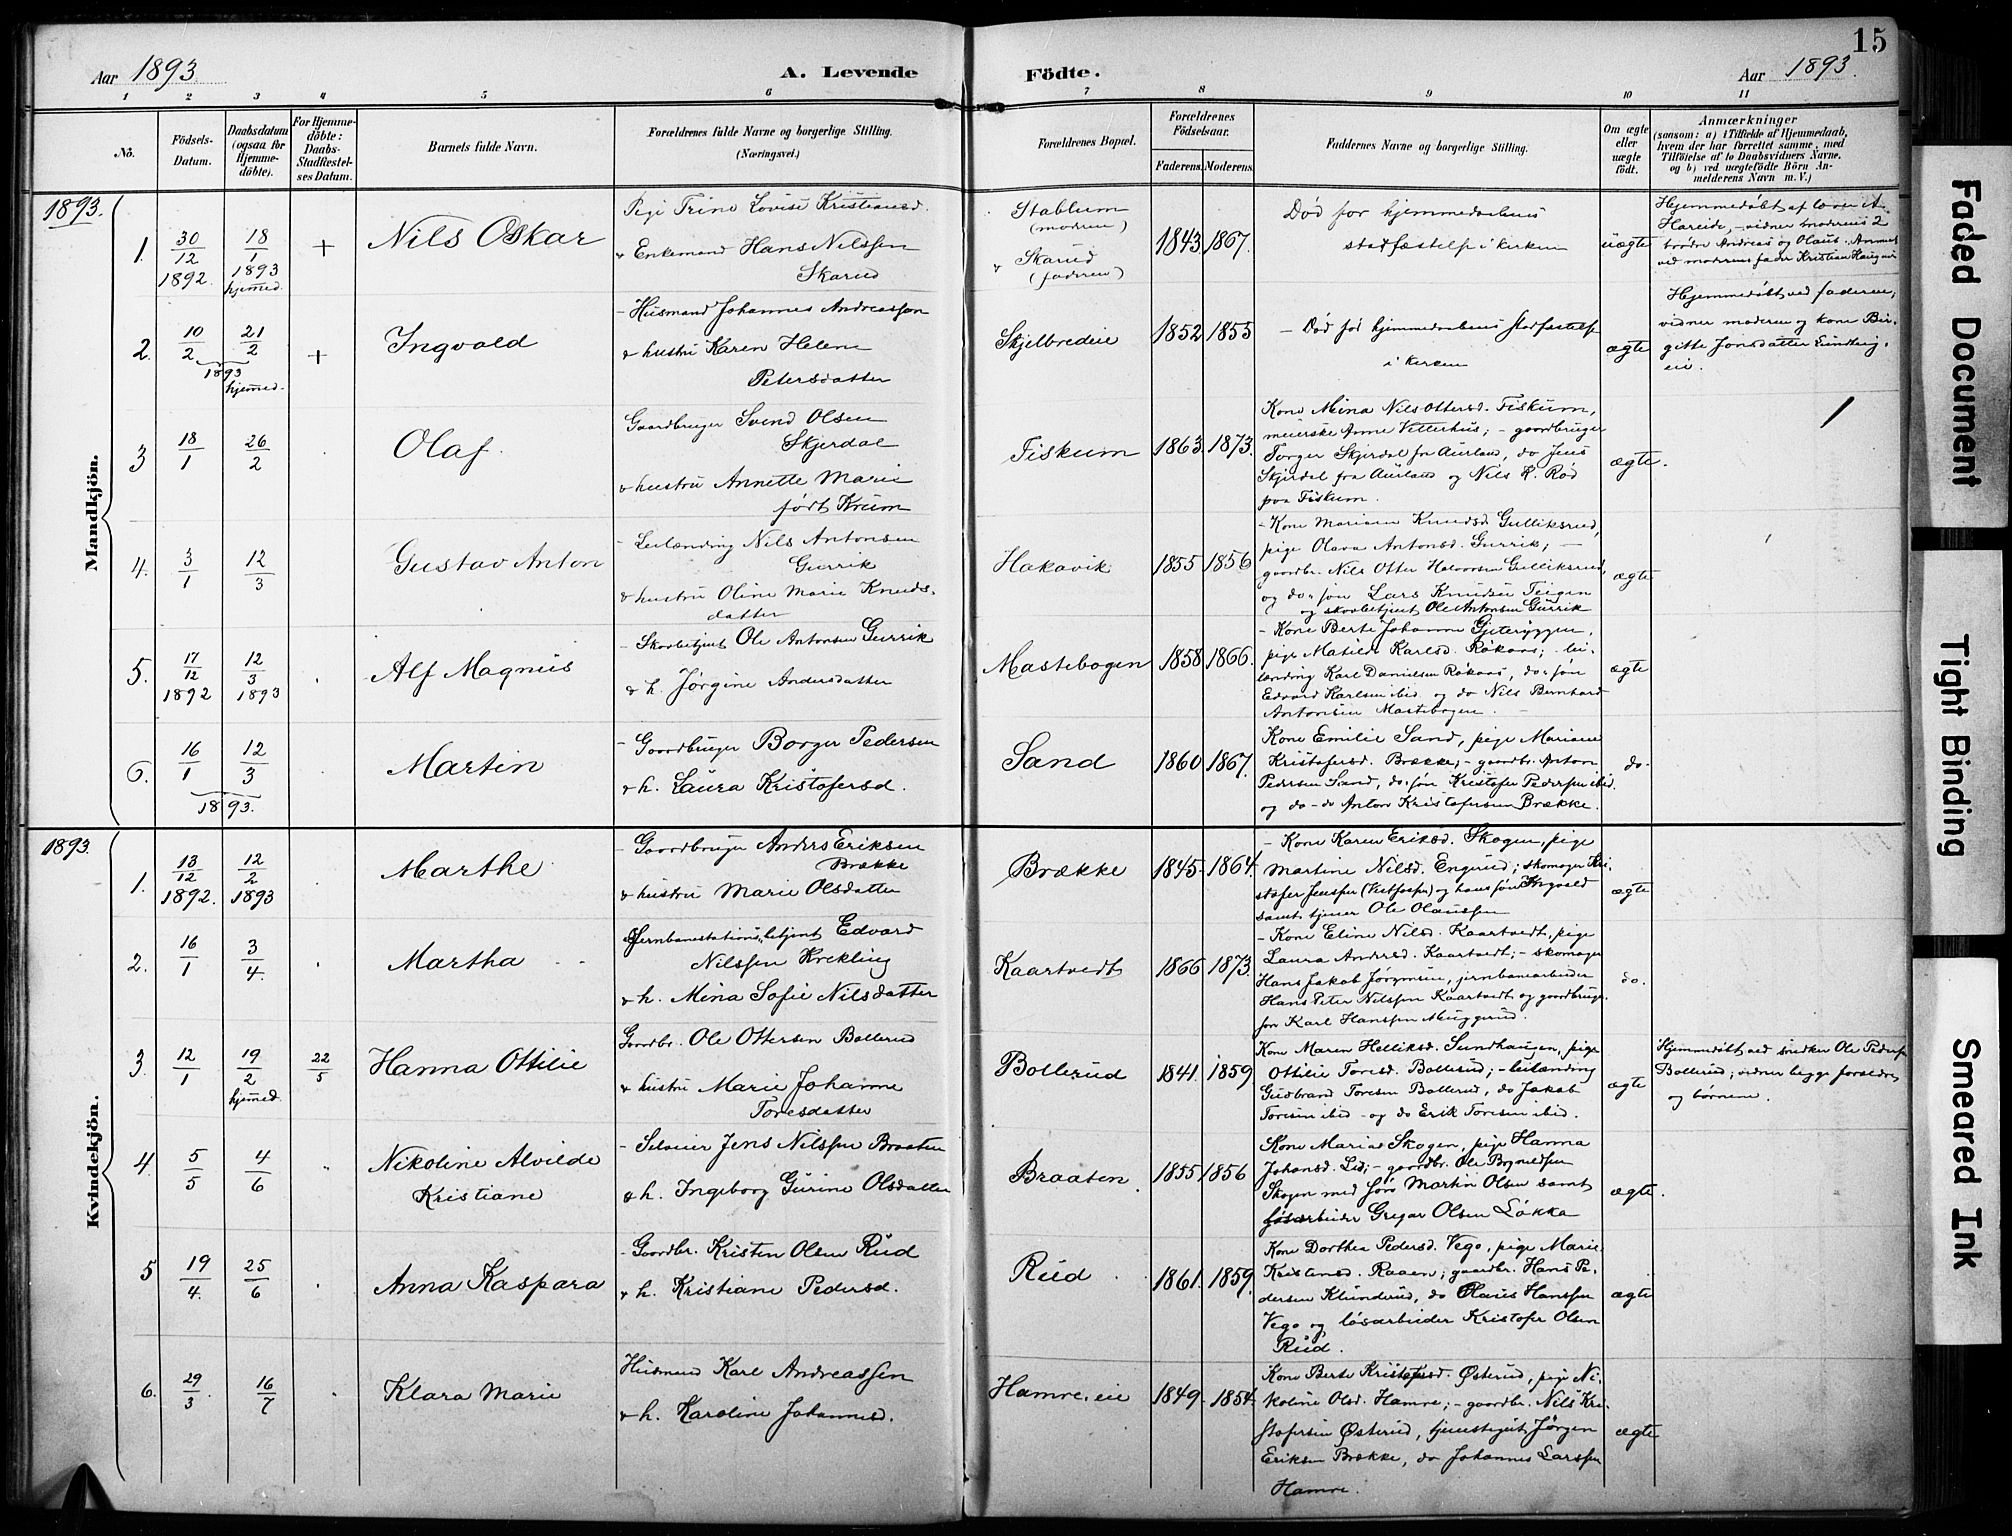 15
Aar 1893.
A. Levende
Födte.
Aar 1893.
1 2 3 4 5 6 7 8 9 10 11
No.
Födsels-Datum.
Daabsdatum (ogsaa for Hjemme-döbte).
For Hjemme-döbte: Daabs-Stadfæstel-ses Datum.
Barnets fulde Navn.
Forældrenes fulde Navne og borgerlige Stilling.
(Næringsvei.)
Forældrenes Bopæl.
Forældrenes Födselsaar.
Faderens. Moderens.
Faddernes Navne og borgerlige Stilling.
Om ægte eller uægte födt.
Anmærkninger
(saasom: a) i Tilfælde af Hjemmedaab,
hvem der har forrettet samme, med
Tilföielse af to Daabsvidners Navne,
og b) ved uægtefödte Börn An-
melderens Navn m. V.)
Mandkjön.
1893.
1. 30/12 1892. 18/1 1893 hjemmed. +
Nils Oskar
Pige Trine Lovise Kristiansd.
& Enkemand Hans Nilssen
Skarud
Stablum
(moderen)
& Skarud
(faderen)
1843 1867.
Död før hjemmedaabens
stadfæstelse i kirken
uægte
Hjemmedöbt af
Hareide, - vidner moderens 2
brødre Andreas og Olaus. Anmeldt
ved moderens fader Kristian Haugen
2. 10/2 21/2 1893 hjemmed. +
Ingvald
- Husmand Johannes Andreassen
& hustru Karen Helene
Petersdatter
Skjelbredeie
1852 1855
- Död før hjemmedaabens Stadfæstelse
i kirken
ægte
Hjemmedöbt ved faderen,
vidner moderen og kone Bir-
gitte Jonsdatter
eie.
3 18/1 26/2
Olaf.
Gaardbruger Svend Olsen
Skjerdal
& hustru Annette Marie
født Krum
Fiskum
1863. 1873.
Kone Mina Nils Ottersd. Fiskum,
meierske Anne Vetterhus; - gaardbruger
Torger Skjerdal fra Aurland, do Jens
Skjerdal fra Aurland og Nils R. Rød
paa Fiskum.
ægte.
4. 3/1 12/3
Gustav Anton
- Leilænding Nils Antonsen
Gurrik
& hustru Oline Marie Knuds-
datter
Hakavik
1855 1856
- Kone Mariann Knudsd. Gulliksrud,
pige Olava Antonsd. Gurrik; -
gaardbr. Nils Otter Halvorsen Gulliksrud,
og do. søn Lars Knudsen Teigen
og skovbetjent Ole Antonsen Gurrik
ægte
5. 17/12 1892 12/3 1893
Alf Magnus
- Skovbetjent Ole Antonsen Gurrik
& h. Jørgine Andersdatter
Mastebogen
1858 1866.
- Kone Berte Johanne Gjeteryggen,
pige Matilde Karlsd. Røkaas; lei-
lænding Karl Danielsen Røkaas, do. søn
Edvard Karlsen ibid. og do Nils Bernhard
Antonsen Mastebogen.
ægte
6. 16/1 12/3 1893.
Martin
- Gaardbruger Borger Pedersen
& h. Laura Kristofersd.
Sand
1860 1867.
Kone Emilie Sand, pige Mariane
Kristofersd. Brække; - gaardbr. Anton
Pedersen Sand, do. søn Kristofer Pedersen ibid.
og do - do Anton Kristofersen Brække.
do.
Kvindekjön.
1893.
1. 13/12 1892. 12/2 1893
Marthe
- Gaardbruger Anders Eriksen
Brække
& hustru Marie Olsdatter
Brække
1845 1864.
- Kone Karen Eriksd. Skogen, pige
Martine Nilsd. Engerud; skomager Kri-
stofer Jensen og hans søn Ingvald
samt tjener Ole Olaussen
ægte
2. 16/1 3/4.
Martha
Jernbanestationsbetjent Edvard
Nilssen Krekling
& h. Mina Sofie Nilsdatter
Kaartvedt
1866 1873.
- Kone Eline Nilsd. Kaartvedt, pige
Laura Andersd. Kaartvedt; - skomager
Hans Jakob Jørgensen, jernbanearbeider
Hans Peter Nilssen Kaartvedt og gaardbruger-
søn Karl Hanssen Muggerud.
do.
3. 12/1 19/2 hjemmed. 22/5
Hanna Ottilie
Gaardbr. Ole Ottersen Bollerud
& hustru Marie Johanne
Toresdatter
Bollerud
1841. 1859
Kone Maren Helliksd. Sundhaugen, pige
Ottilie Toresd. Bollerud; - leilænding
Gudbrand Toresen Bollerud, do Jakob
Toresen ibid. - og do Erik Toresen ibid.
ægte
Hjemmedöbt ved snedker Ole Pedersen
Bollerud; vidner begge forældre
og børnene.
4. 5/5 4/6
Nikoline Alvilde
Kristiane
- Selveier Jens Nilssen Braaten
& h. Ingeborg Gurine Olsdatter
Braaten
1855 1856
Kone Marie Skogen, pige Hanna
Johansd. Lid; - gaardbr. Ole Bryneldsen
Skogen med søn Martin Olsen samt
løsarbeider Gregar Olsen Løkka
ægte.
5 19/4. 25/6
Anna Kaspara
- Gaardbr. Kristen Olsen Rud
& h. Kristiane Pedersd.
Rud
1861. 1859.
Kone Dorthea Pedersd. Vego, pige Marie
Kristensd. Raaen; gaardbr. Hans Pe-
dersen Klunderud, do Olaus Hanssen
Vego og løsarbeider Kristofer Olsen
Rud.
ægte
6. 29/3. 16/7
Klara Marie
Husmand Karl Andreassen
& h. Karoline Johannesd.
Hamre. eie
1849 1854.
Kone Berte Kristofersd. Østerud, pige Ni-
koline Olsd. Hamre; - gaardbr. Nils Kri-
stofersen Østerud, tjenestegut Jørgen
Eriksen Brække, do Johannes Larssen
Hamre.
ægte
Faded Document
Tight Binding
Smeared Ink